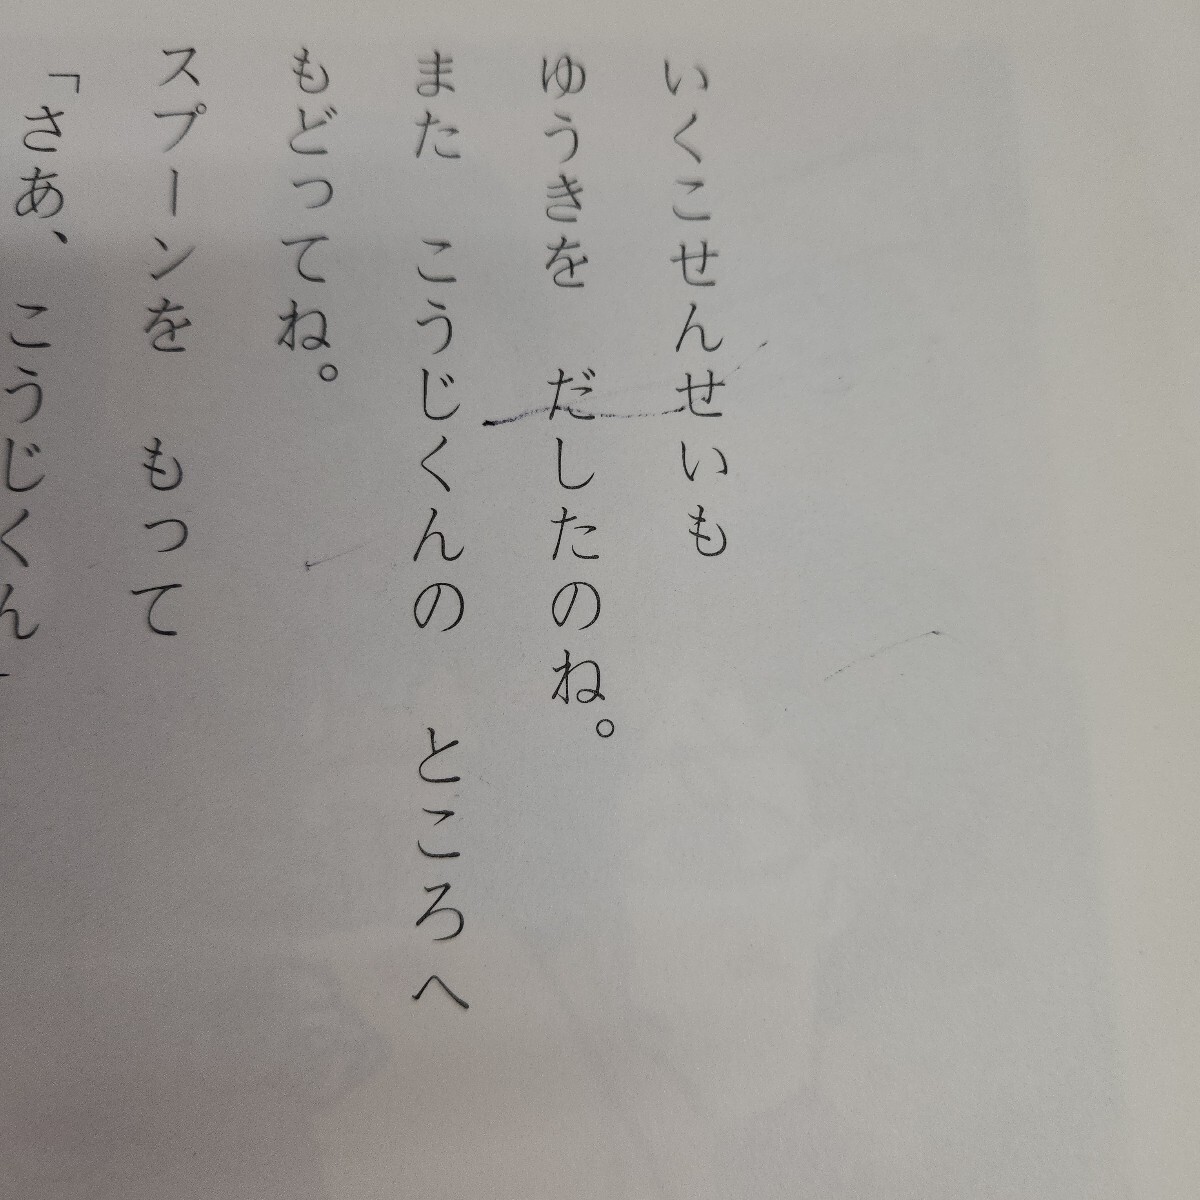 いくこせんせいも
ゆうきを　だしたのね。
また　こうじくんの　ところへ
もどってね。
スプーンを　もって
「さあ、こうじくん